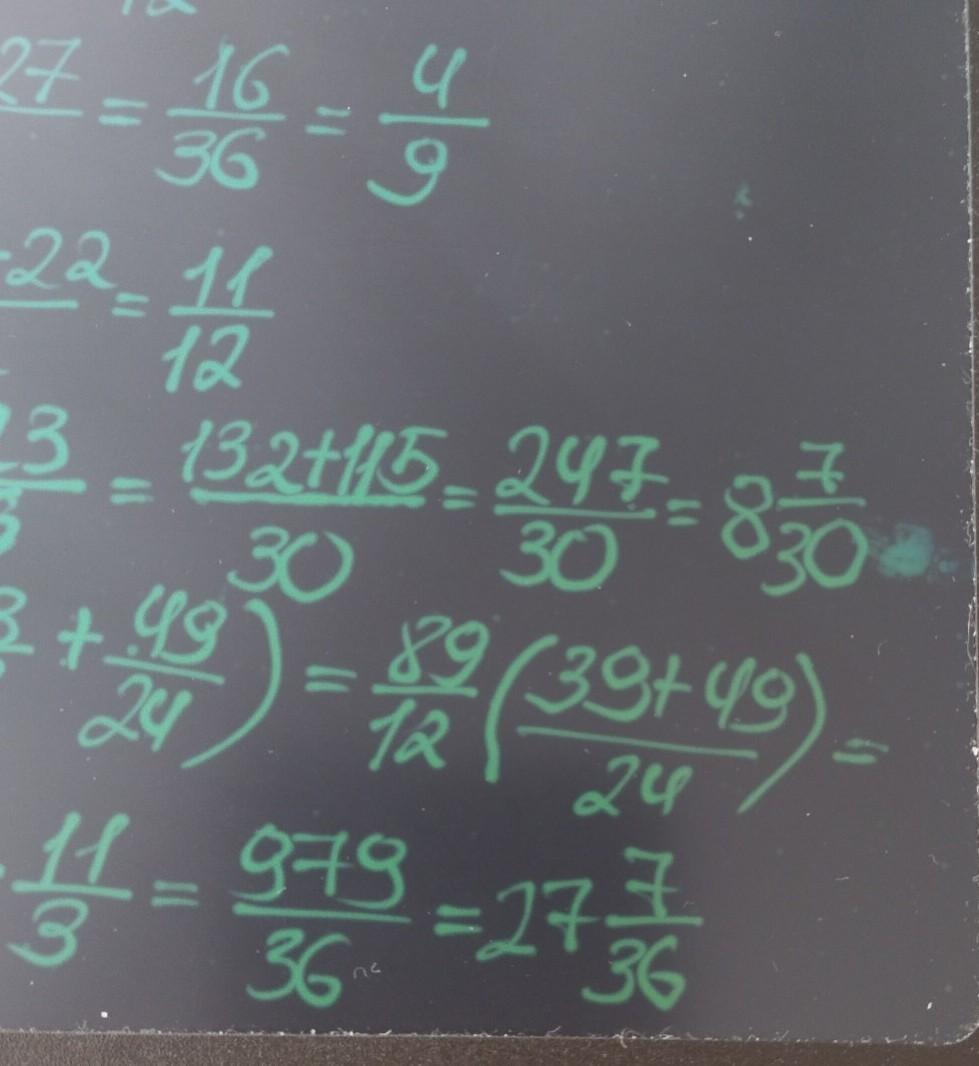 12
27 = 16/36 = 4/9
-22 = 11/12
23/3 = 132+115/30 = 247/30 = 8 7/30
+ 49/24) = 89/12 (39+49/24) =
11/3 = 979/36 = 27 7/36